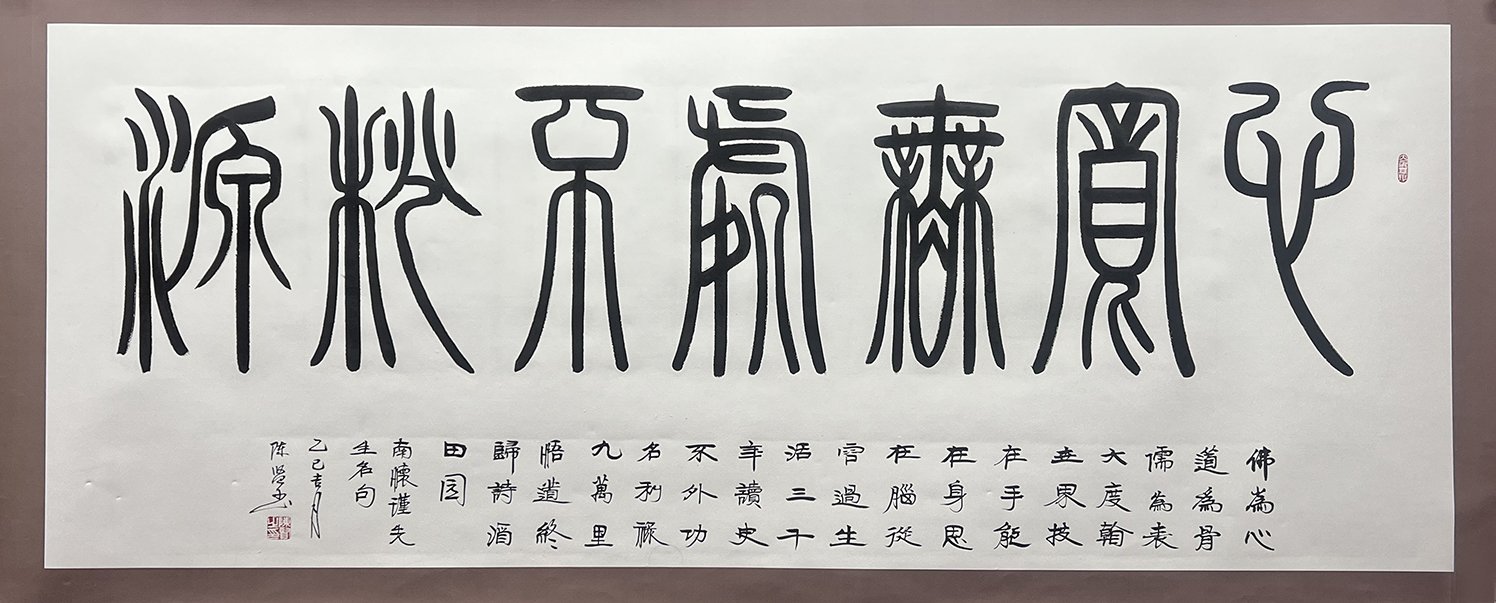 心寬無處不桃源
佛為心
道為骨
儒為表
大度翰
世界技
在手能
在身思
在腦從
容過生
活三千
年讀史
不外功
名利祿
九萬里
悟道終
歸詩酒
田园
南懷谨先
生名句
乙巳吉月
陈书